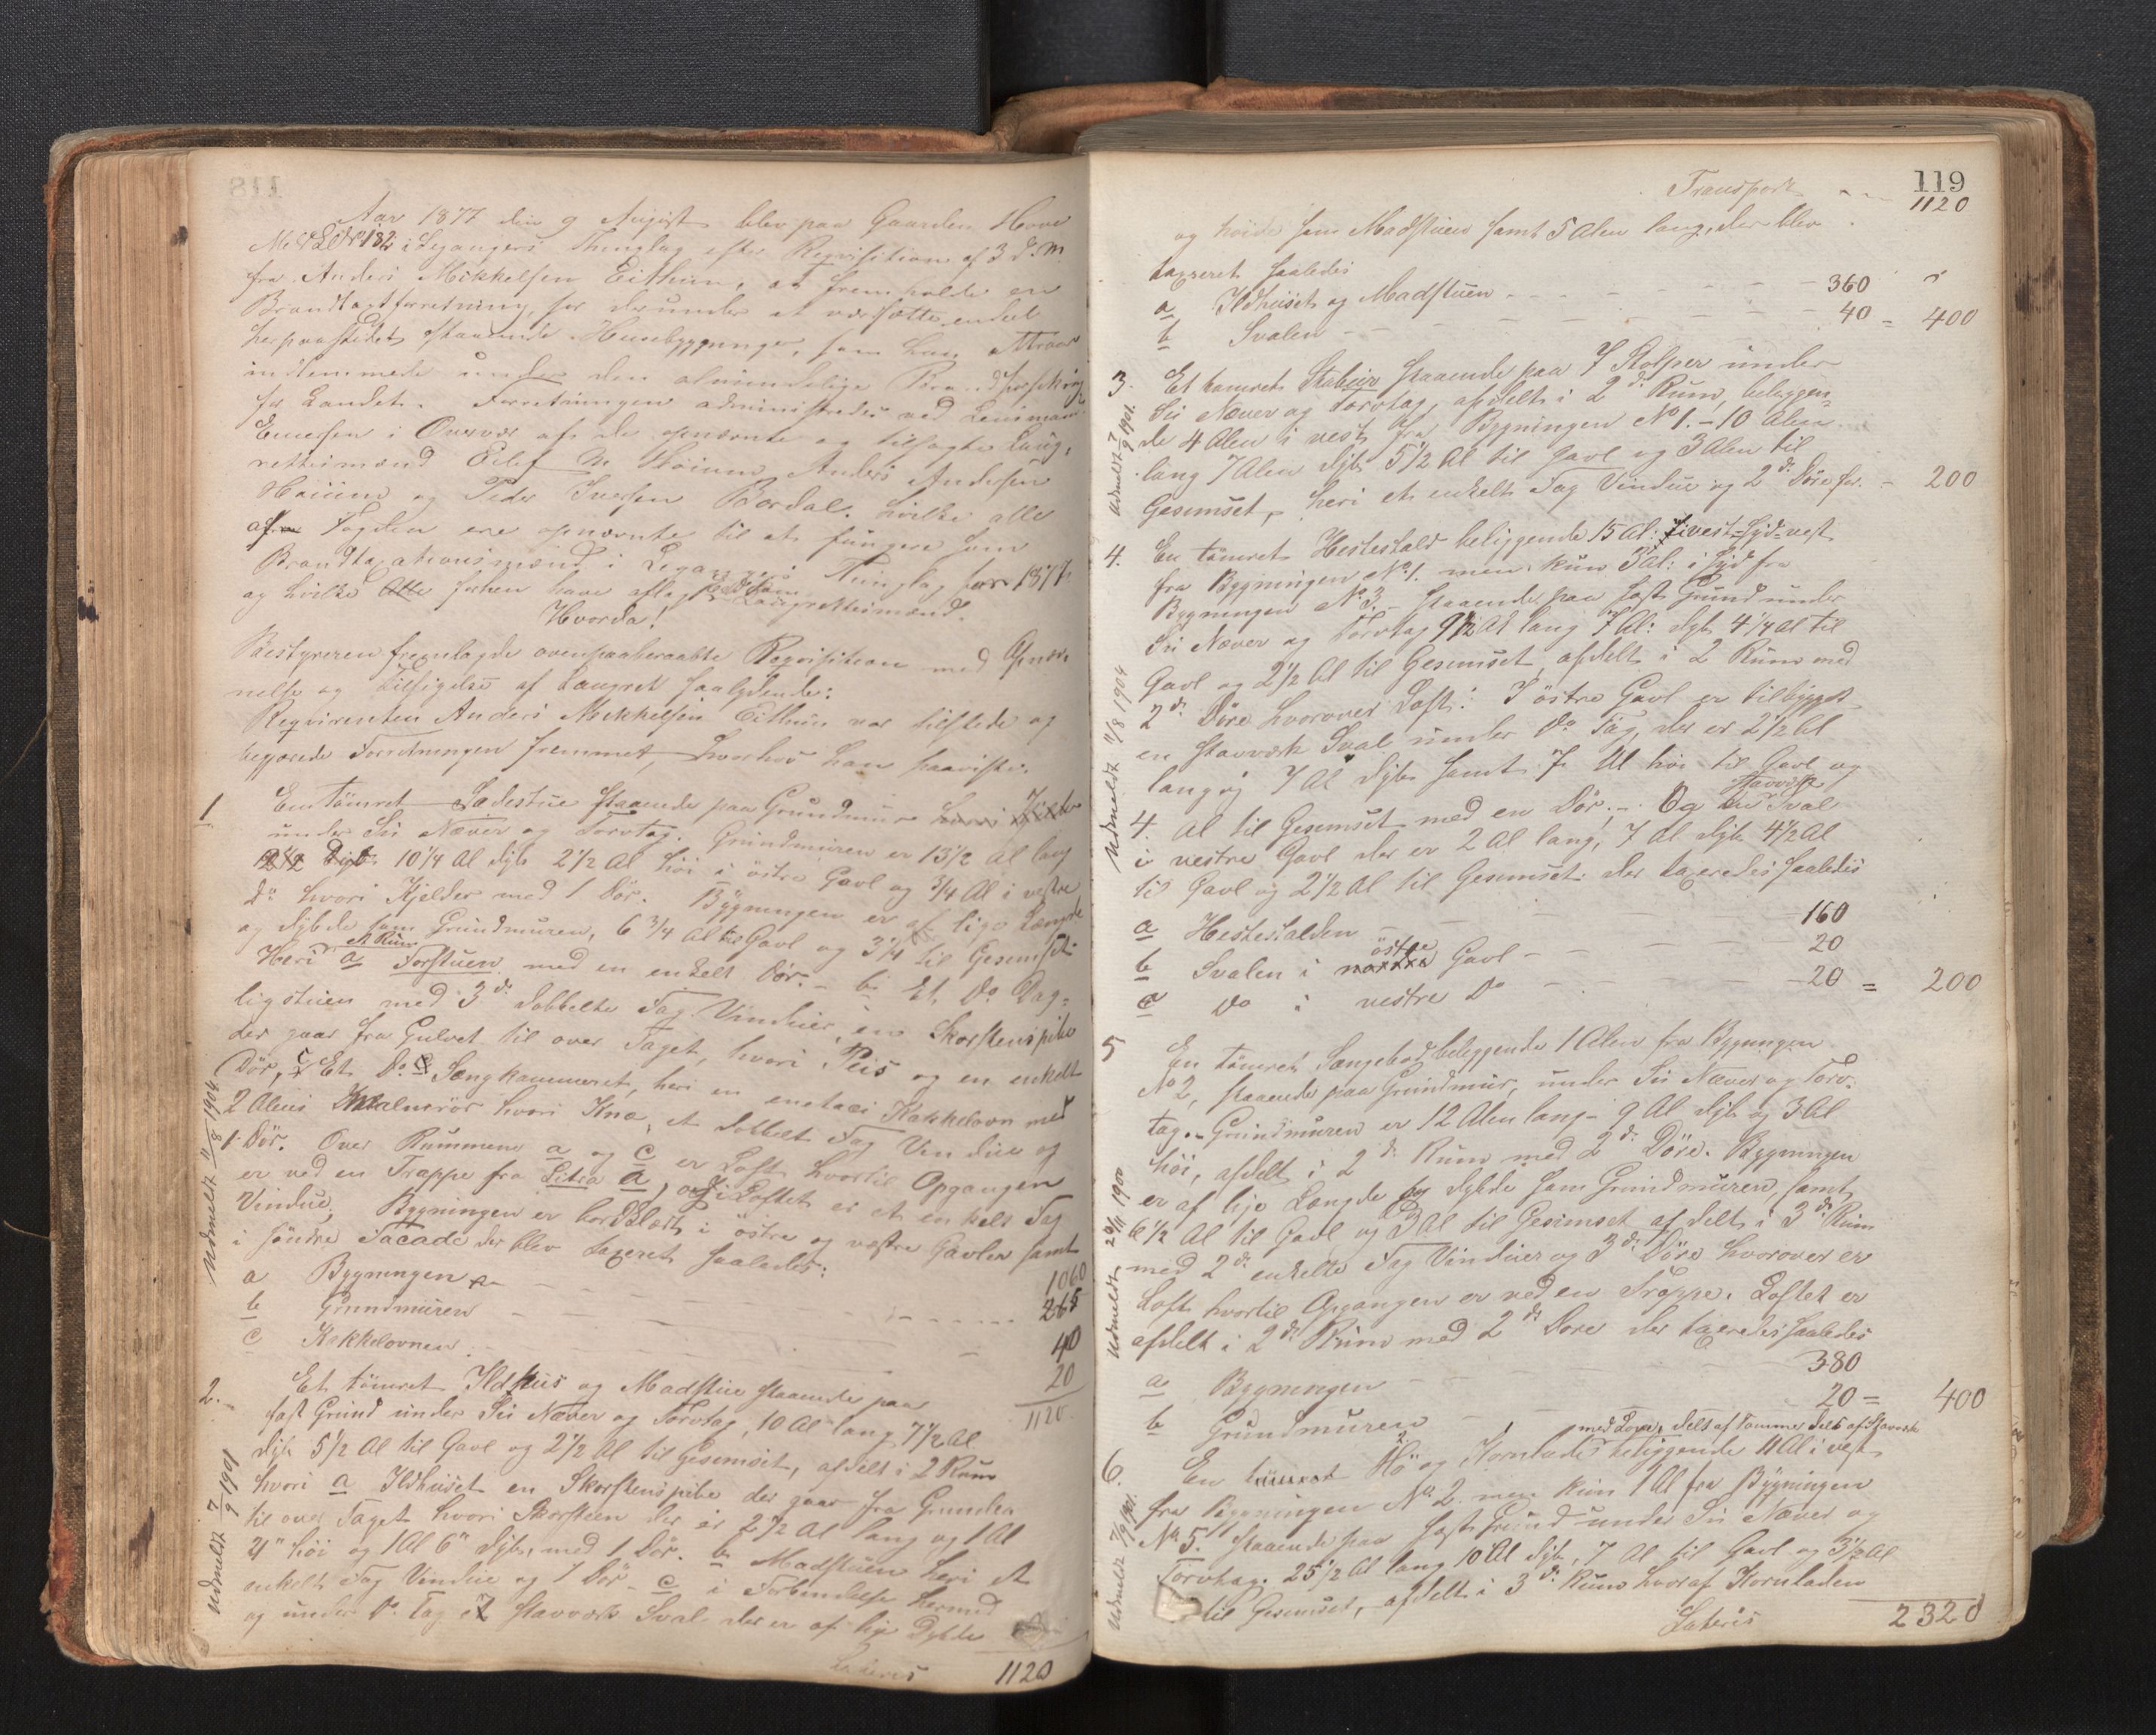 Aar 1877 den 9 August blev paa Gaarden Hove
M: N: L N: 182 i Leganger Thinglag efter Reqvisition af 3 d: M
fra Anders Mikkelsen Eithun, at fremholde en
Brandtaxtforretning, for derunder at værsætte endeel
herpaastedet staaende Huusbygninger, som han attraar
indlemmede under den almindelige Brandforsikring
for Landet. Forretningen administredes ved Lensmand
i Overvær af de opnævnte og tilsagte Laug¬
rettesmænd Eilef Anders Andersen
og Peder Iversen Bordal. hvilke alle
af Fogden ere opnævnte til at fungere som
Brandtaxationsmænd i Leganger Thinglag for 1877
og hvilke Alle forhen have aflagt Ed som Laugrettesmænd.
Hvorda!
Bestyreren fremlagde ovenpaaberaabte Reqvisition med Opnæv¬
nelse og Tilsigelse af Laugret saalydende:
Reqvirenten Anders Mikkelsen Eithun var tilstede og
begjærede Forretningen fremmet, hvorhos han paaviste.
1 En tømret Sædestue staaende paa Grundmuur
under Sin Næver og Torvtag. Grundmuren er 13 1/2 Al lang
10 1/4 Al dyb 2 1/2 Al høi i östre Gavl og 3/4 Al i vestre
Do hvori Kjelder med 1 Dör. Bygningen er af lige Længde
og dybde som Grundmuren, 6 3/4 Al til Gavl og 3 1/4 til Gesemset
Heri a et Rum Forstuen med en enkelt Dör. – b: Et Do Dag¬
ligstuen med 3 de dobbelte Fag Vinduer, en Skorstenspibe
der gaar fra Gulvet til over Taget, hvori Peis og en enkelt
Dör, c Et Do Sængkammeret, heri en enetaxi Kakkelovn med
2 Alens Malmrör hvori Knæ, et dobbelt Fag Vindue og
1 Dör. Over Rummene a og c er Loft hvortil Opgangen
er ved en Trappe fra Litra a, og i Loftet er et enkelt Fag
Vindue, Bygningen er bordklædt i östre og vestre Gavler samt
i söndre Facade der blev taxeret saaledes:
a Bygningen 1060
b Grundmuren
c Kakkelovnen
20
1120
2. Et tömret Ildhus og Madstue staaende paa
fast Grund under Sin Næver og Torvtag, 10 Al lang 7 1/2 Al
dyb 5 1/2 Al til Gavl og 2 1/2 Al til Gesemset, afdelt i 2 Rum
hvori a Ildhuset en Skorstenspibe der gaar fra Grunden
til over Taget hvori Skorsteen der er 2 1/2 Al lang og 1 Al
21" høi og 1 Al 6" dyb, med 1 Dör. b Madstuen heri et
enkelt Fag Vindue og 1 Dör – c i Forbindelse hermed
og under Do Tag et Stavværk Sval der er af lige Dybde
Lateris 1120
Udmeldt 11/8 1904
Udmeldt 7/9 1901
119
Transport 1120
og höide som Madstuen samt 5 Alen lang, der blev
taxeret saaledes
a Ildhuset og Madstuen 360
b Svalen 40 = 400
3. Et tømret Stabur staaende paa 7 Stolper under
Sin Næver og Torvtag, afdelt i 2 de Rum, beliggen¬
de 4 Alen i vest fra Bygningen No 1. – 10 Alen
lang 7 Alen dyb 5 1/2 Al til Gavl og 3 Alen til
Gesemset, heri et enkelt Fag Vindue og 2 de Döre for. – 200
4. En tömret Hestestald beliggende 15 Al: i vest-Syd-vest
fra Bygningen No 1. men kun 3 Al: i Syd fra
Bygningen No 3 – staaende paa fast Grund under
Sin Næver og Torvtag 9 1/2 Al lang 7 Al: dyb 4 1/4 Al til
Gavl og 2 1/2 Al til Gesemset, afdelt i 2 Rum med
2 de Döre hvorover Loft: I östre Gavl er tilbygget
en Stavværk Sval under Do Tag, der er 2 1/2 Al
lang og 7 Al dyb samt 7 Al høi til Gavl og
4 Al til Gesemset med en Dör. – Og en Stavværk Sval
i vestre Gavl der er 2 Al lang, 7 Al dyb 4 1/2 Al
til Gavl og 2 1/2 Al til Gesemset: der taxeredes saaledes
a Hestestalden 160
b Svalen i östre Gavl 20
c Do i vestre Do 20 = 200
5 En tømret Sængebod beliggende 1 Alen fra Bygningen
No 2, staaende paa Grundmur, under Sin Næver og Torv¬
tag. – Grundmuren er 12 Alen lang – 9 Al dyb og 3 Al
høi, afdelt i 2 de Rum med 2 de Döre. Bygningen
er af lige Længde og dybde som Grundmuren, samt
6 1/2 Al til Gavl og 3 Al til Gesimset afdelt i 3 de Rum
med 2 de enkelte Fag Vinduer og 3 de Döre hvorover er
Loft hvortil Opgangen er ved en Trappe. Loftet er
afdelt i 2 de Rum med 2 de Döre der taxeredes saaledes
a Bygningen 380
b Grundmuren 20 = 400
6. En Hö og Kornlade med Love, dels af Tømmer dels af Stavværk beliggende 11 Al i vest
fra Bygningen No 2 men kun 1 Al fra Bygningen
No 5. staaende paa fast Grund under Sin Næver og
Torvtag. 25 1/2 Al lang 10 Al dyb, 7 Al til Gavl og 3 1/2 Al
til Gesemset, afdelt i 3 de Rum hvoraf Kornladen
Lateris 2320
Udmeldt 7/9 1901.
Udmeldt 11/8 1904
Udmeldt 29/11 1900
Udmeldt 7/9 1901.